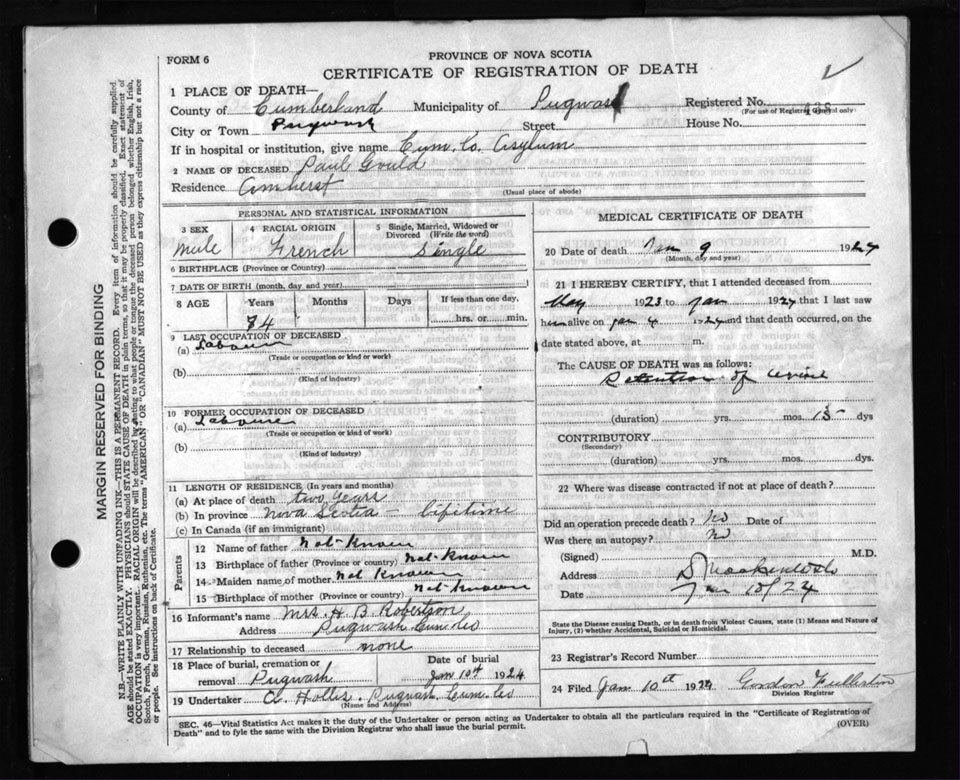 FORM 6
PROVINCE OF NOVA SCOTIA
CERTIFICATE OF REGISTRATION OF DEATH
1 PLACE OF DEATH—
County of Cumberland Municipality of Pugwash Registered No.
(For use of Registrar General only)
City or Town Pugwash Street House No.
If in hospital or institution, give name Cum. Co. Asylum
2 NAME OF DECEASED Paul Gould
Residence Amherst
(Usual place of abode)
PERSONAL AND STATISTICAL INFORMATION
3 SEX 4 RACIAL ORIGIN 5 Single, Married, Widowed or Divorced (Write the word)
Male French Single
6 BIRTHPLACE (Province or Country)
7 DATE OF BIRTH (month, day, and year)
8 AGE Years Months Days If less than one day,
hrs. or min.
84
9 LAST OCCUPATION OF DECEASED
(a) Labourer
(Trade or occupation or kind of work)
(b)
(Kind of industry)
10 FORMER OCCUPATION OF DECEASED
(a) Labourer
(Trade or occupation or kind of work)
(b)
(Kind of industry)
11 LENGTH OF RESIDENCE (In years and months)
(a) At place of death two years
(b) In province Nova Scotia — lifetime
(c) In Canada (if an immigrant)
Parents
12 Name of father Not Known
13 Birthplace of father (Province or country) Not Known
14 Maiden name of mother Not Known
15 Birthplace of mother (Province or country) Not Known
16 Informant's name Mrs. H B Robertson
Address Pugwash Cum. Co
17 Relationship to deceased none
18 Place of burial, cremation or removal Pugwash
Date of burial Jan 10th 1924
19 Undertaker A. Hollis. Pugwash, Cum. Co
(Name and Address)
MEDICAL CERTIFICATE OF DEATH
20 Date of death Jan 9 1924
(Month, day and year)
21 I HEREBY CERTIFY, that I attended deceased from
May 1923 to Jan 1924 that I last saw
him alive on Jan 4 1924 and that death occurred, on
date stated above, at m.
The CAUSE OF DEATH was as follows:
Retention of urine
(duration) yrs. mos. 15 dys
CONTRIBUTORY
(Secondary)
(duration) yrs. mos. dys.
22 Where was disease contracted if not at place of death?
Did an operation precede death? No Date of
Was there an autopsy? No
(Signed) M.D.
Address
Date Jan 10/24
State the Disease causing Death, or in death from Violent Causes, state (1) Means and Nature of
Injury, (2) whether Accidental, Suicidal or Homicidal.
23 Registrar's Record Number
24 Filed Jan 10th 1924 Gordon
Division Registrar
SEC. 46—Vital Statistics Act makes it the duty of the Undertaker or person acting as Undertaker to obtain all the particulars required in the "Certificate of Registration of
Death" and to fyle the same with the Division Registrar who shall issue the burial permit.
(OVER)
MARGIN RESERVED FOR BINDING
N.B.—WRITE PLAINLY WITH UNFADING INK—THIS IS A PERMANENT RECORD. Every item of information should be carefully supplied.
AGE should be stated EXACTLY. PHYSICIANS should STATE CAUSE OF DEATH in plain terms, so that it may be properly classified. Exact statement of
OCCUPATION is very important. RACIAL ORIGIN will be described by stating to what people or tongue the deceased person belonged whether English, Irish,
Scotch, French, German, Russian, Ruthenian, etc. The terms "AMERICAN" OR "CANADIAN" MUST NOT BE USED as they express citizenship but not a race
or people. See instructions on back of Certificate.